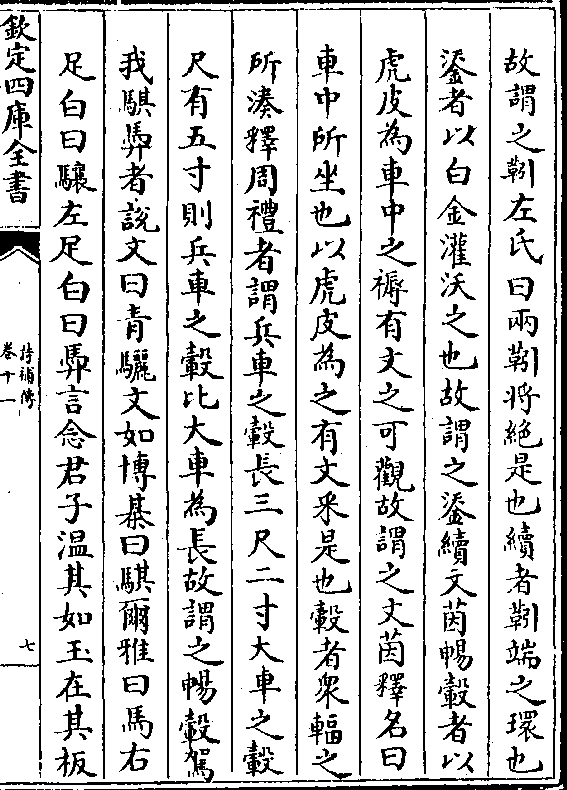 故謂之靷左氏曰兩靷將絶是也續者靷端之環也
鋈者以白金灌沃之也故謂之鋈續文茵暢轂者以
虎皮為車中之褥有文之可觀故謂之文茵釋名曰
車中所坐也以虎皮為之有文采是也轂者衆輻之
所湊釋周禮者謂兵車之轂長三尺二寸大車之轂
尺有五寸則兵車之轂比大車為長故謂之暢轂駕
我騏馵者說文曰青驪文如博棊曰騏爾雅曰馬右
足白曰驤左足白曰馵言念君子温其如玉在其板
欽定四庫全書
詩補傳
卷十一
七